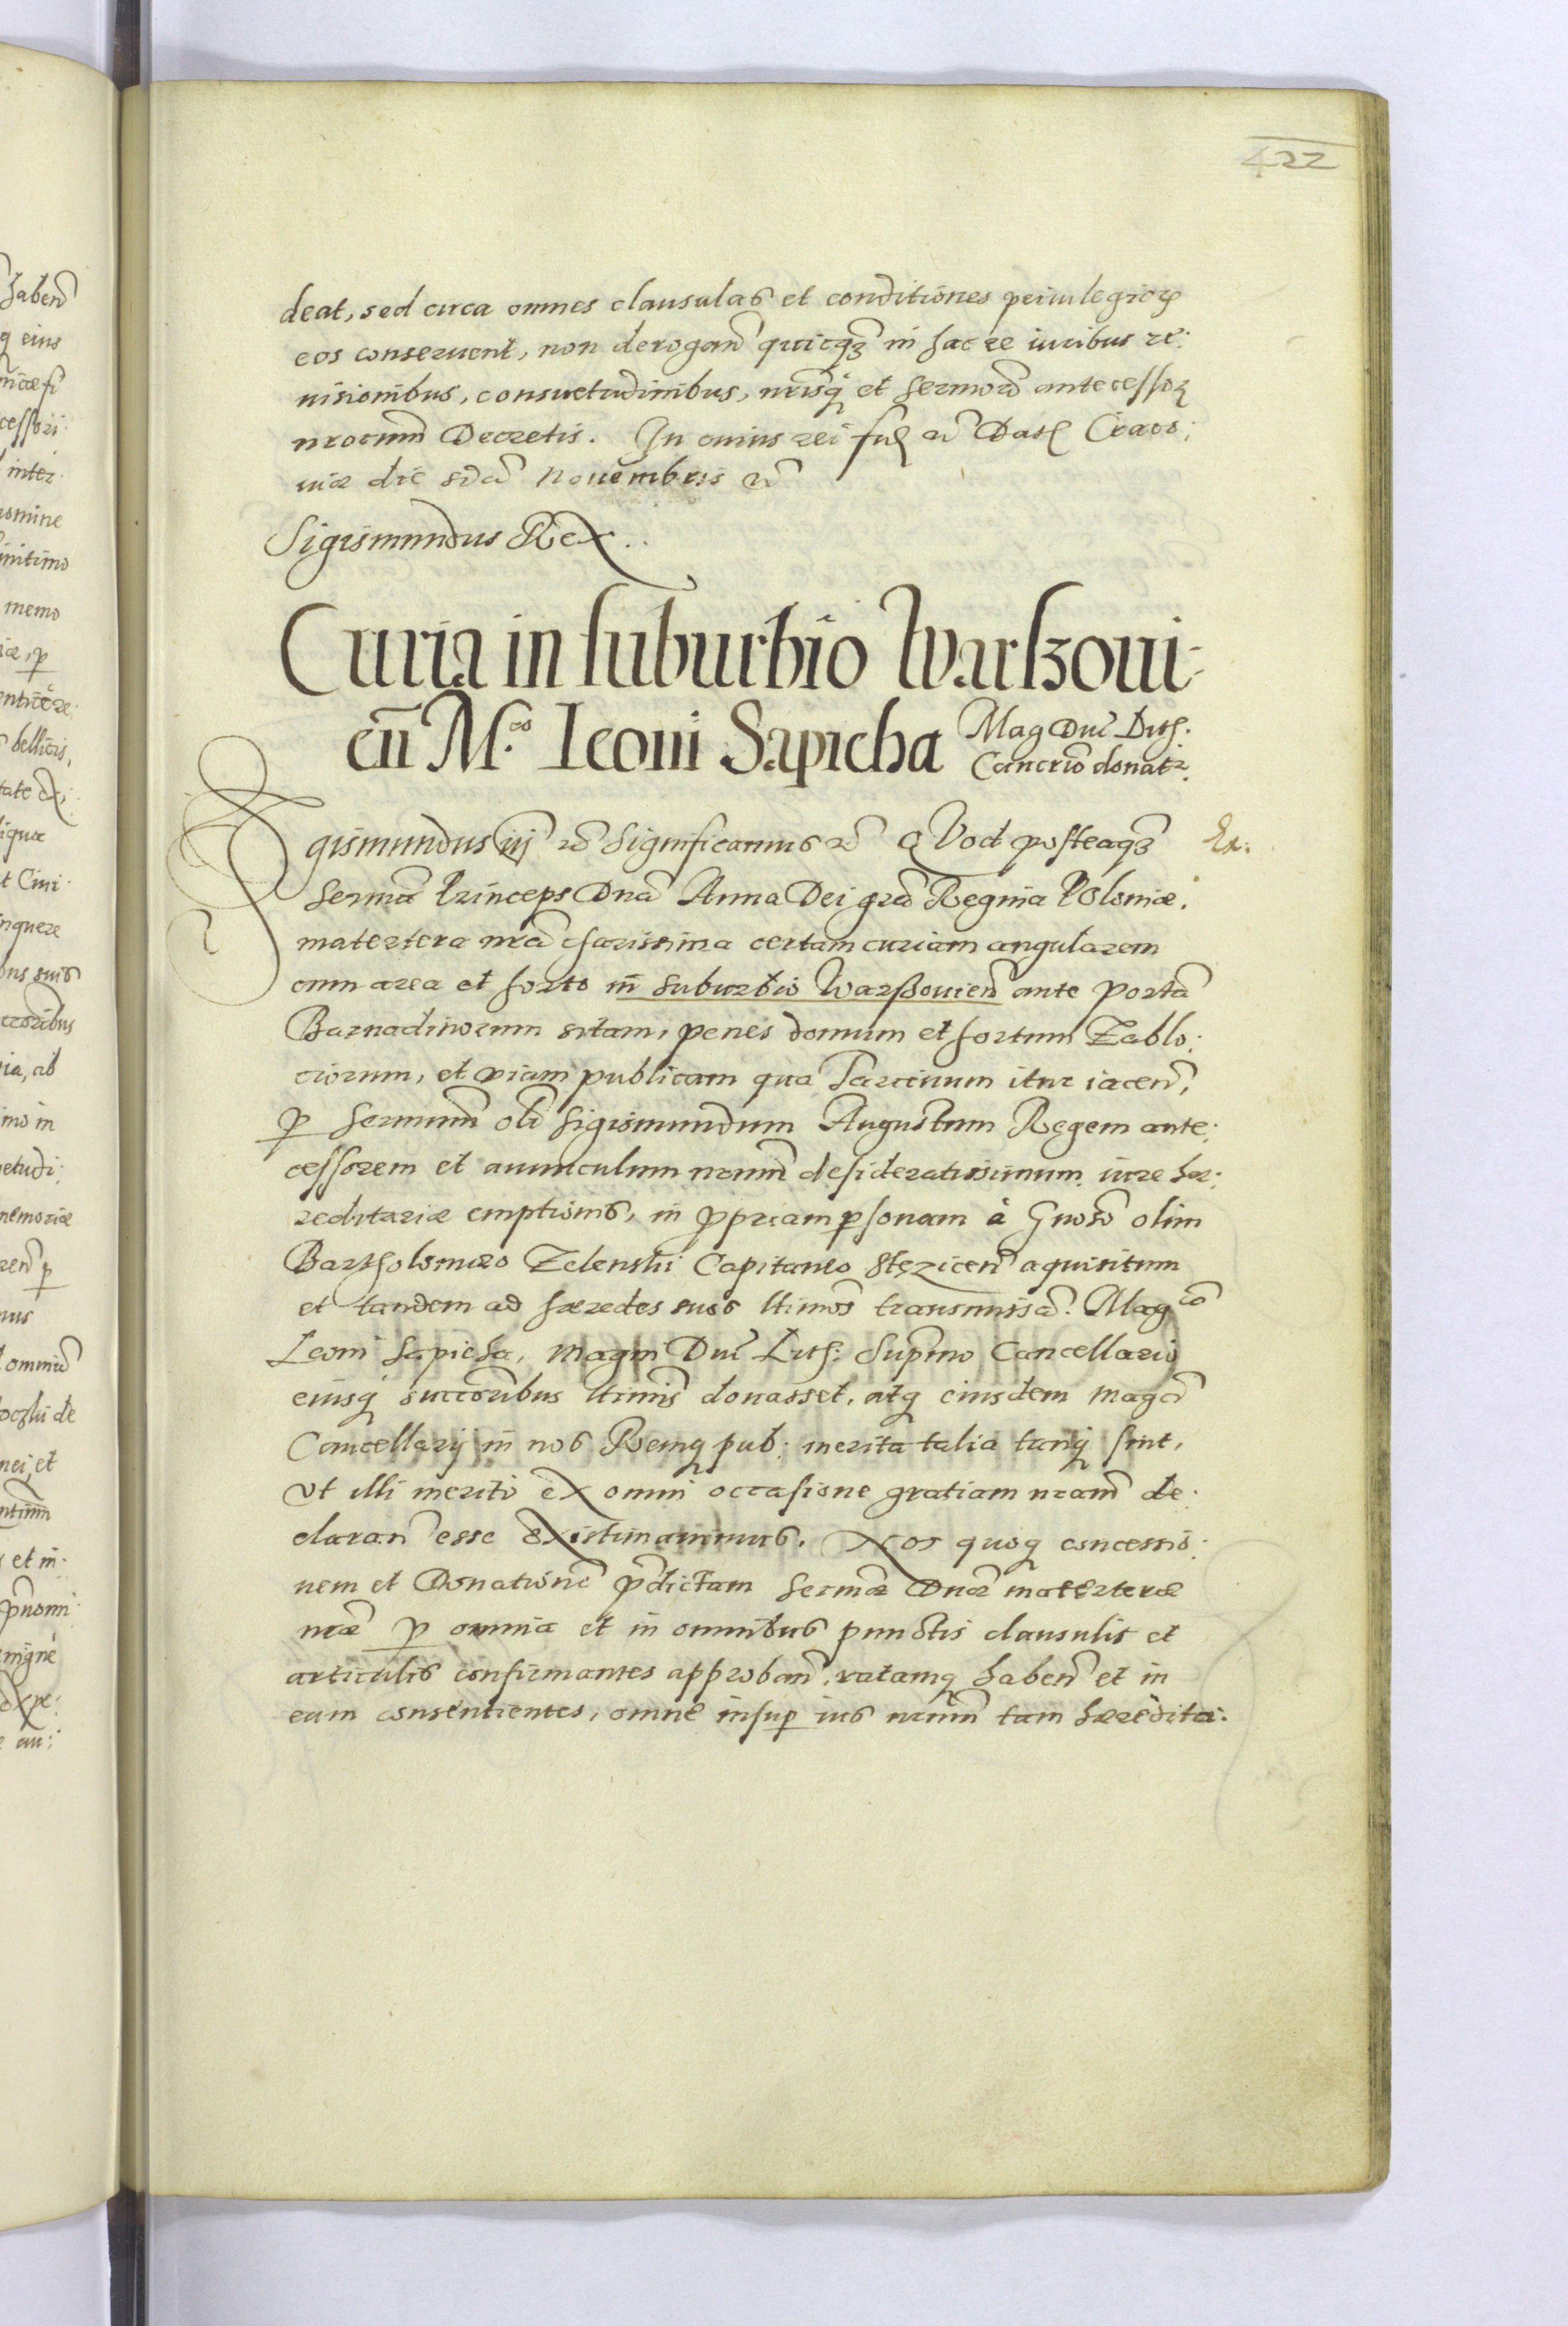 422
deat, sed circa omnes clausulas et conditiones priuilegioꝝ
eos conseruent, non derogan̄ quicqꝫ in hac re iuribus re:
uisionibus, consuetudinibus, nrīsqꝫ et sermorū antecessoꝝ
nrorum Decretis. In cuius rei etc Dat Craco:
uiæ die Nouembris etc
Sigismundus Rex.
Curia in suburbio Warszoui-
eñ M.co Leoni Sapieha Mag Duc̄ Lith.
Cancrio donatr.
Sigismundus iij etc Significamus etc QVod posteaqꝫ
Serma Princeps Dna Anna Dei gra Regina Poloniæ,
matertera nra charissima certam curiam angularem
cum area et horto in suburbio Warszouien̄ ante portā
Barnadinorum sitam, penes domum et hortum Zablo:
ciorum, et viam publicam qua Tarcinum itur iacen̄,
ꝑ sermum oli Sigismundum Augustum Regem ante:
cessorem et auunculum nrum desideratissimum iure hæ:
reditariæ emptionis, in ꝓpriam ꝑsonam à Gnoso olim
Bartholomæo Zelenski Capitaneo Stęzicen̄ aquisitum
et tandem ad hæredes suos ltimos transmissā. Magco
Leoni Sapieha, Magni Duc̄ Lith: Supmo Cancellario
eiusqꝫ succoribus ltimis donasset, atqꝫ eiusdem Magci
Cancellarij in nos Remqꝫ pub: merita talia tantaqꝫ sint,
vt illi merito ex omni occasione gratiam nram de:
claran̄ esse existimauimus. Nos quoqꝫ concessio:
nem et Donationē p̄dictam sermæ Dnæ materteræ
nræ ꝑ omnia et in omnibus punctis clausulis et
articulis confirmantes approban̄, ratamqꝫ haben̄ et in
eum consentientes, omne insuꝑ ius nrum tam hæredita:
Ex: